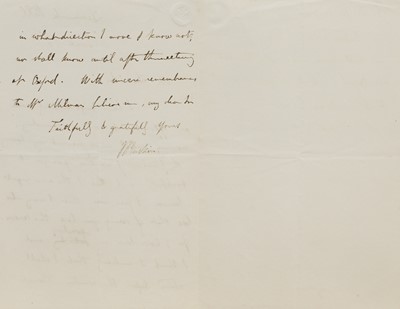 in what direction I move I know not,
nor shall know until after the meeting
at Oxford. With sincere remembrances
to Mr Milman believe me, my dear Sir
Faithfully & gratefully Yours